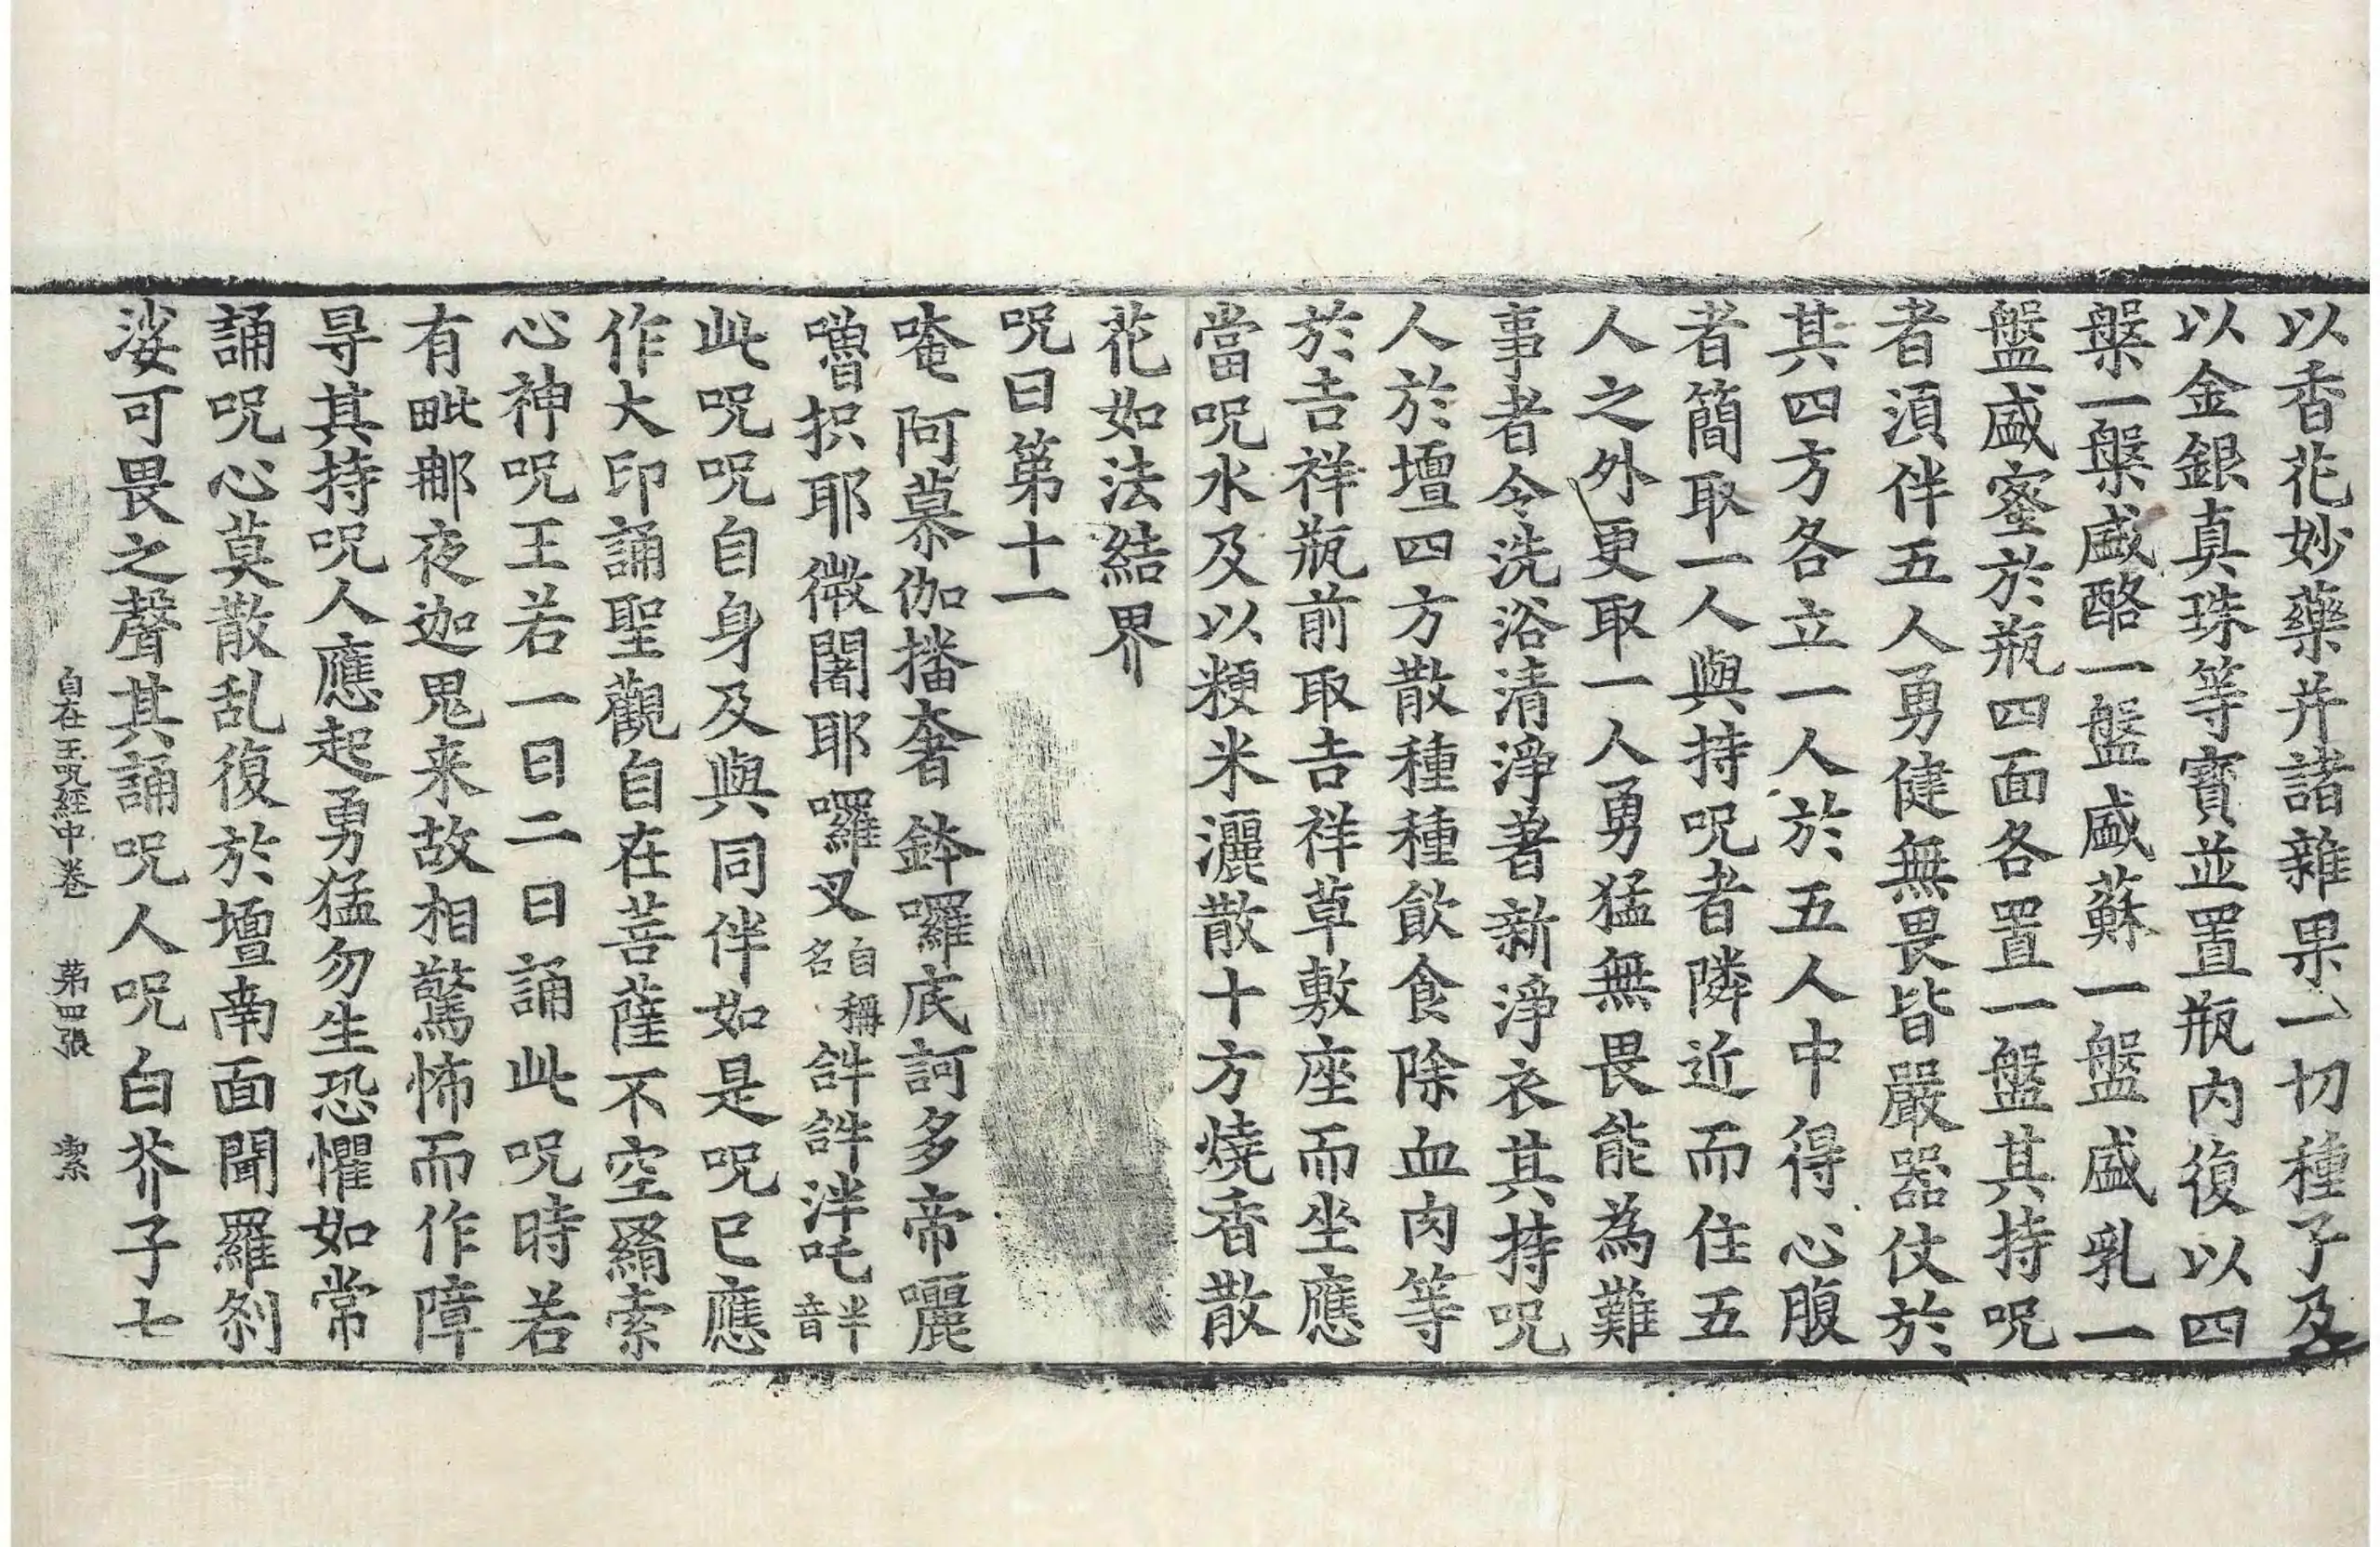 以香花妙藥并諸雜果一切種子及
以金銀真珠等寶並置瓶内復以四
槃一槃盛酪一盤盛蘇一盤盛乳一
盤盛蜜於瓶四面各置一盤其持呪
者湏伴五人勇健無畏皆嚴器仗於
其四方各立一人於五人中得心腹
者簡取一人與持呪者隣近而住五
人之外更取一人勇猛無畏能為難
事者令洗浴清淨著新淨衣其持呪
人於壇四方散種種飲食除血肉等
於吉祥瓶前取吉祥草敷座而坐應
當呪水及以粳米灑散十方燒香散
花如法結界
呪曰第十一
唵阿慕伽播奢鉢囉底訶多帝囇
嚕抧耶微闍耶囉叉自稱名𤙖𤙖泮吒半音
此呪呪自身及與同伴如是呪已應
作大印誦聖觀自在菩薩不空羂索
心神呪王若一日二日誦此呪時若
有毗那夜迦鬼来故相驚怖而作障
㝵其持呪人應起勇猛勿生恐懼如常
誦呪心莫散乱復於壇南面聞羅刹
娑可畏之聲其誦呪人呪白芥子七
自在王呪經中卷 苐四張 潔